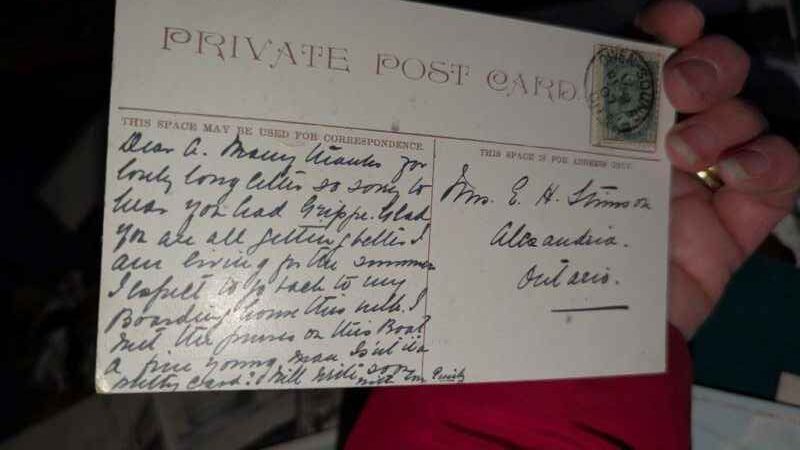 PRIVATE POST CARD.
THIS SPACE MAY BE USED FOR CORRESPONDENCE.
Dear A. Many thanks for
lovely long letter so sorry to
hear you had Grippe. Glad
you are all getting better I
am living for the summer
I expect to go back to my
Boarding house this week. I
met the purser on this Boat
a fine young man. Isn't it a
pretty card? Will write soon
THIS SPACE IS FOR ADDRESS ONLY.
Mrs. E. H. Stimson
Alexandria.
Ontario.